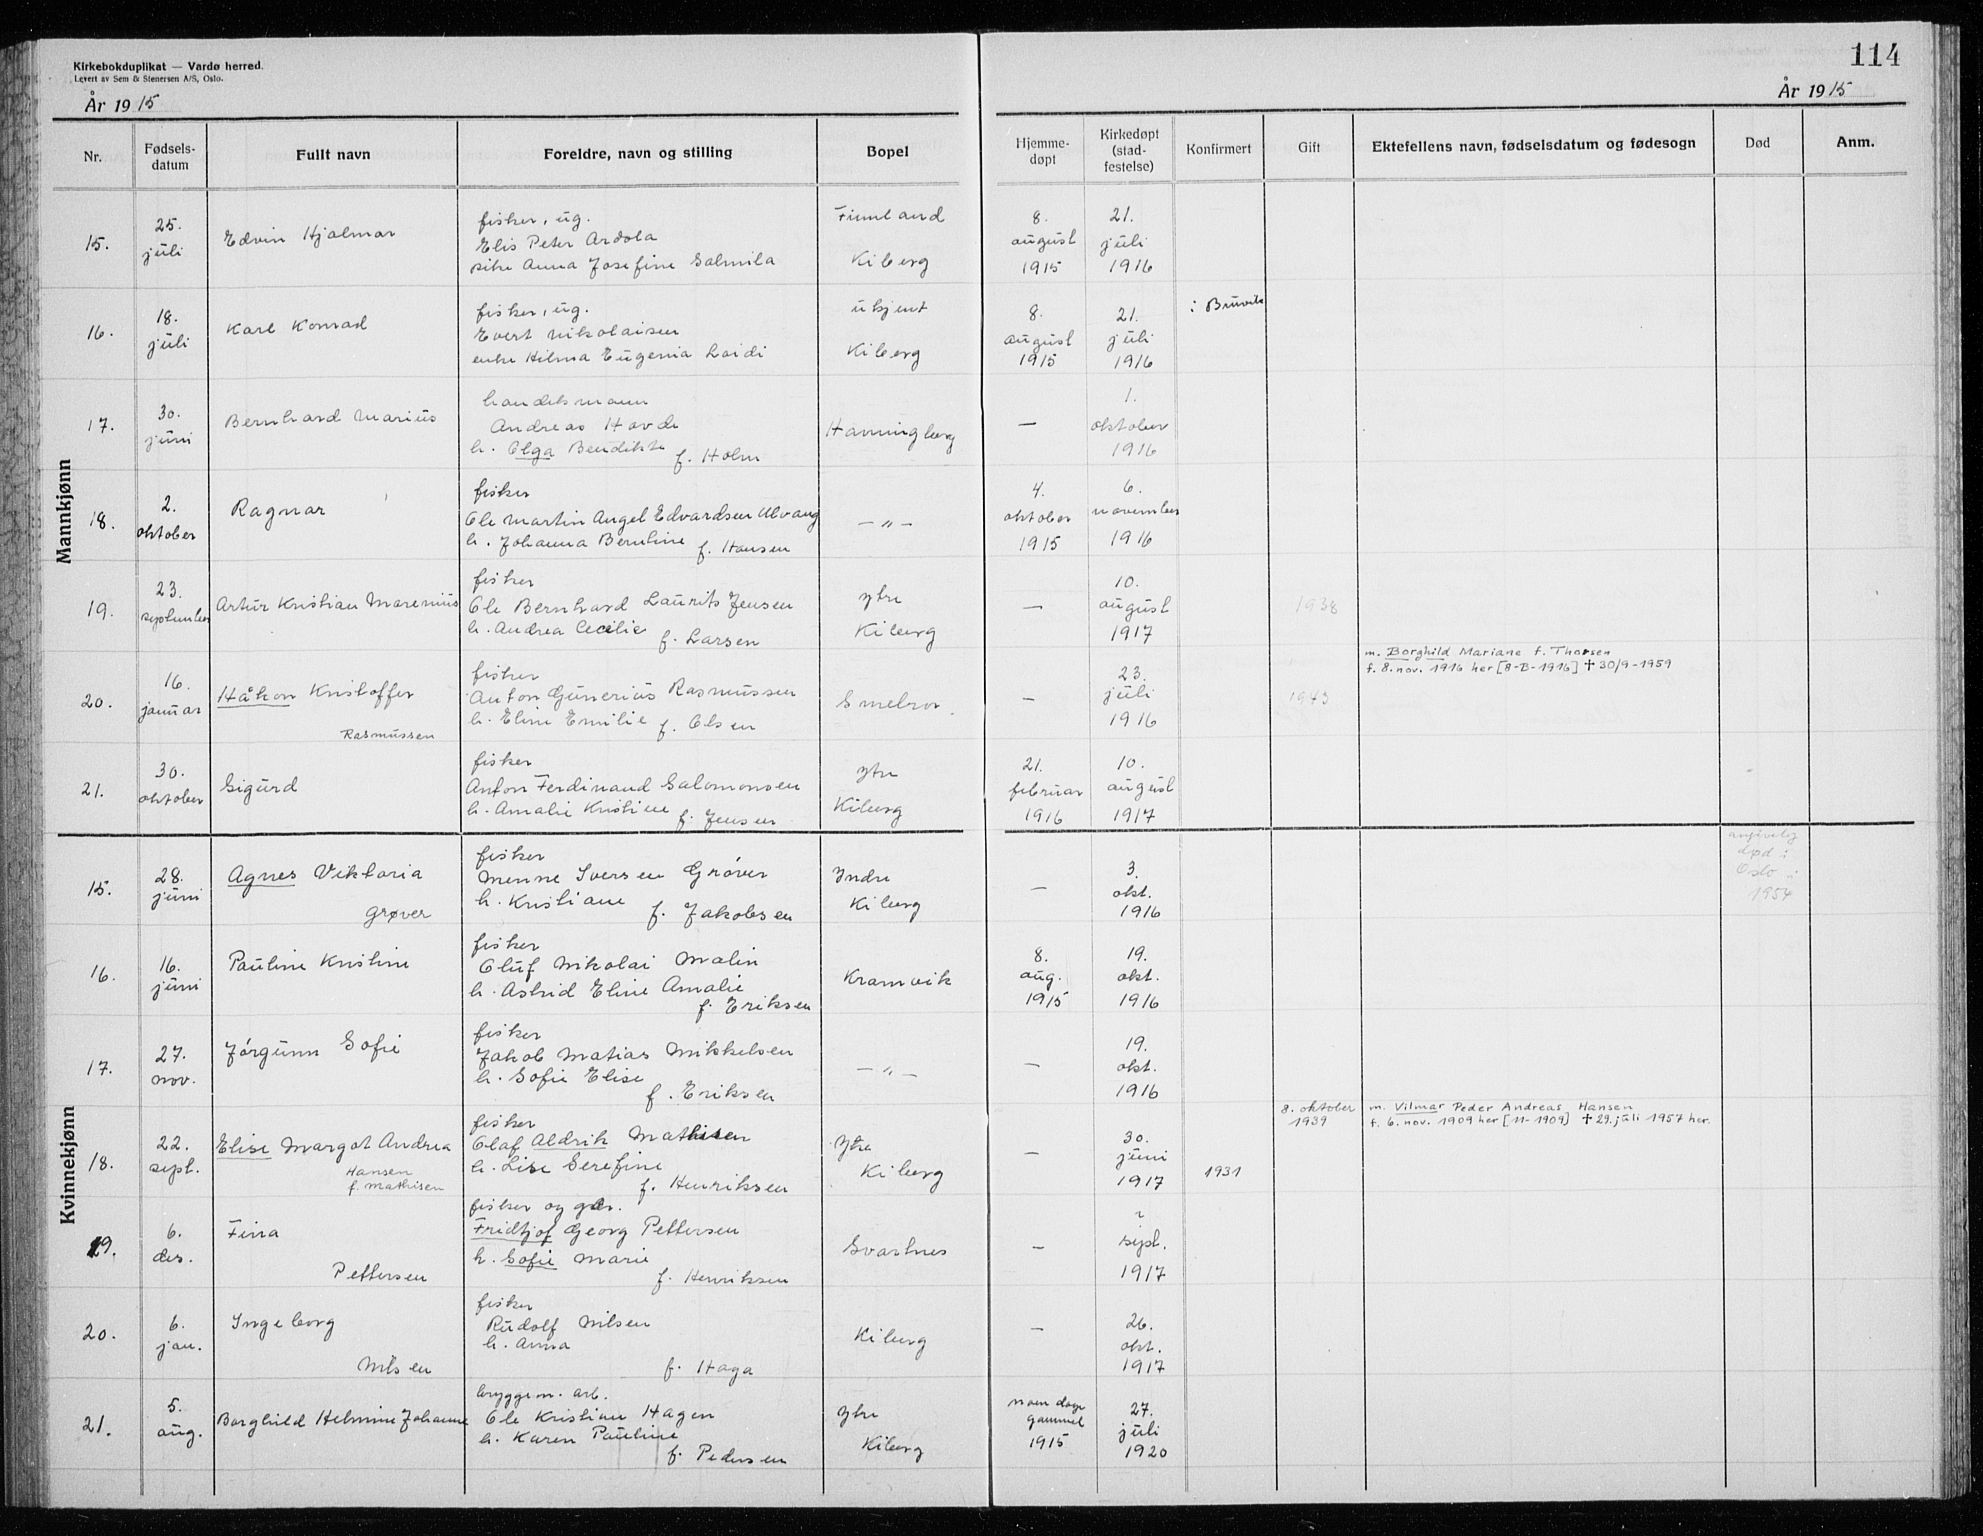 Kirkebokduplikat — Vardø herred.
Levert av Sem & Stenersen A/S, Oslo.
114
År 1915
År 1915
Nr. Fødselsdatum Fullt navn Foreldre, navn og stilling Bopel Hjemmedøpt Kirkedøpt (stadfestelse) Konfirmert Gift Ektefellens navn, fødselsdatum og fødesogn Død Anm.
Mannkjønn
15. 25. juli Edvin Hjalmar
fisker, ug. Finnland
Elis Peter Ardola
pike Anna Josefine Salmila Kiberg
8. august 1915 21. juli 1916
16. 18. juli Karl Konrad
fisker, ug. ukjent
Evert Nikolaisen
enke Hilma Eugenia Laidi Kiberg
8. august 1915 21. juli 1916 i Bruvik
17. 30. juni Bernhard Marius
handelsmann
Andreas Havde
h. Olga Bendikte f. Holm
Havningberg — 1. oktober 1916
18. 2. oktober Ragnar
fisker
Ole Martin Angel Edvardsen Ulvang
h. Johanna Berntine f. Hansen
— " — 4. oktober 1915 6. november 1916
19. 23. september Artur Kristian Marenius
fisker
Ole Bernhard Laurits Jensen
h. Andrea Cecilie f. Larsen
Ytre Kiberg — 10. august 1917 1938
20. 16. januar Håkon Kristoffer
Rasmussen
fisker
Anton Gunerius Rasmussen
h. Eline Emilie f. Olsen
Smelror — 23. juli 1916 1943
m. Borghild Mariane f. Thorsen
f. 8. nov. 1916 her [8-B-1916] † 30/9-1959
21. 30. oktober Sigurd
fisker
Anton Ferdinand Salomonsen
h. Amalie Kristine f. Jensen
Ytre Kiberg 21. februar 1916 10. august 1917
Kvinnekjønn
15. 28. juni Agnes Viktoria
Grøver
fisker
Menne Iversen Grøver
h. Kristiane f. Jakobsen
Indre Kiberg — 3. okt. 1916
angivelig død i Oslo i 1954
16. 16. juni Pauline Kristine
fisker
Oluf Nikolai Malin
h. Astrid Eline Amalie
f. Eriksen
Kramvik 8. aug. 1915 19. okt. 1916
17. 27. nov. Jørgunn Sofie
fisker
Jakob Matias Mikkelsen
h. Sofie Elise
f. Eriksen
— " — — 19. okt. 1916
18. 22. sept. Elise Margot Andrea
Hansen
f. Mathisen
fisker
Olaf Aldrik Mathisen
h. Lise Serefine
f. Henriksen
Ytre Kiberg — 30. juni 1917 1931 8. oktober 1939
m. Vilmar Peder Andreas Hansen
f. 6. nov. 1909 her [11-1909] † 29. juli 1957 her.
19. 6. des. Fina
Pettersen
fisker og gdr.
Fridtjof Georg Pettersen
h. Sofie Marie
f. Henriksen
Svartnes — sept. 1917
20. 6. jan. Ingeborg
Nilsen
fisker
Rudolf Nilsen
h. Anna
f. Haga
Kiberg — 26. okt. 1917
21. 5. aug. Borghild Helmine Johanne
bryggem. arb.
Ole Kristian Hagen
h. Karen Pauline
f. Pedersen
Ytre Kiberg noen dage gammel 1915 27. juli 1920